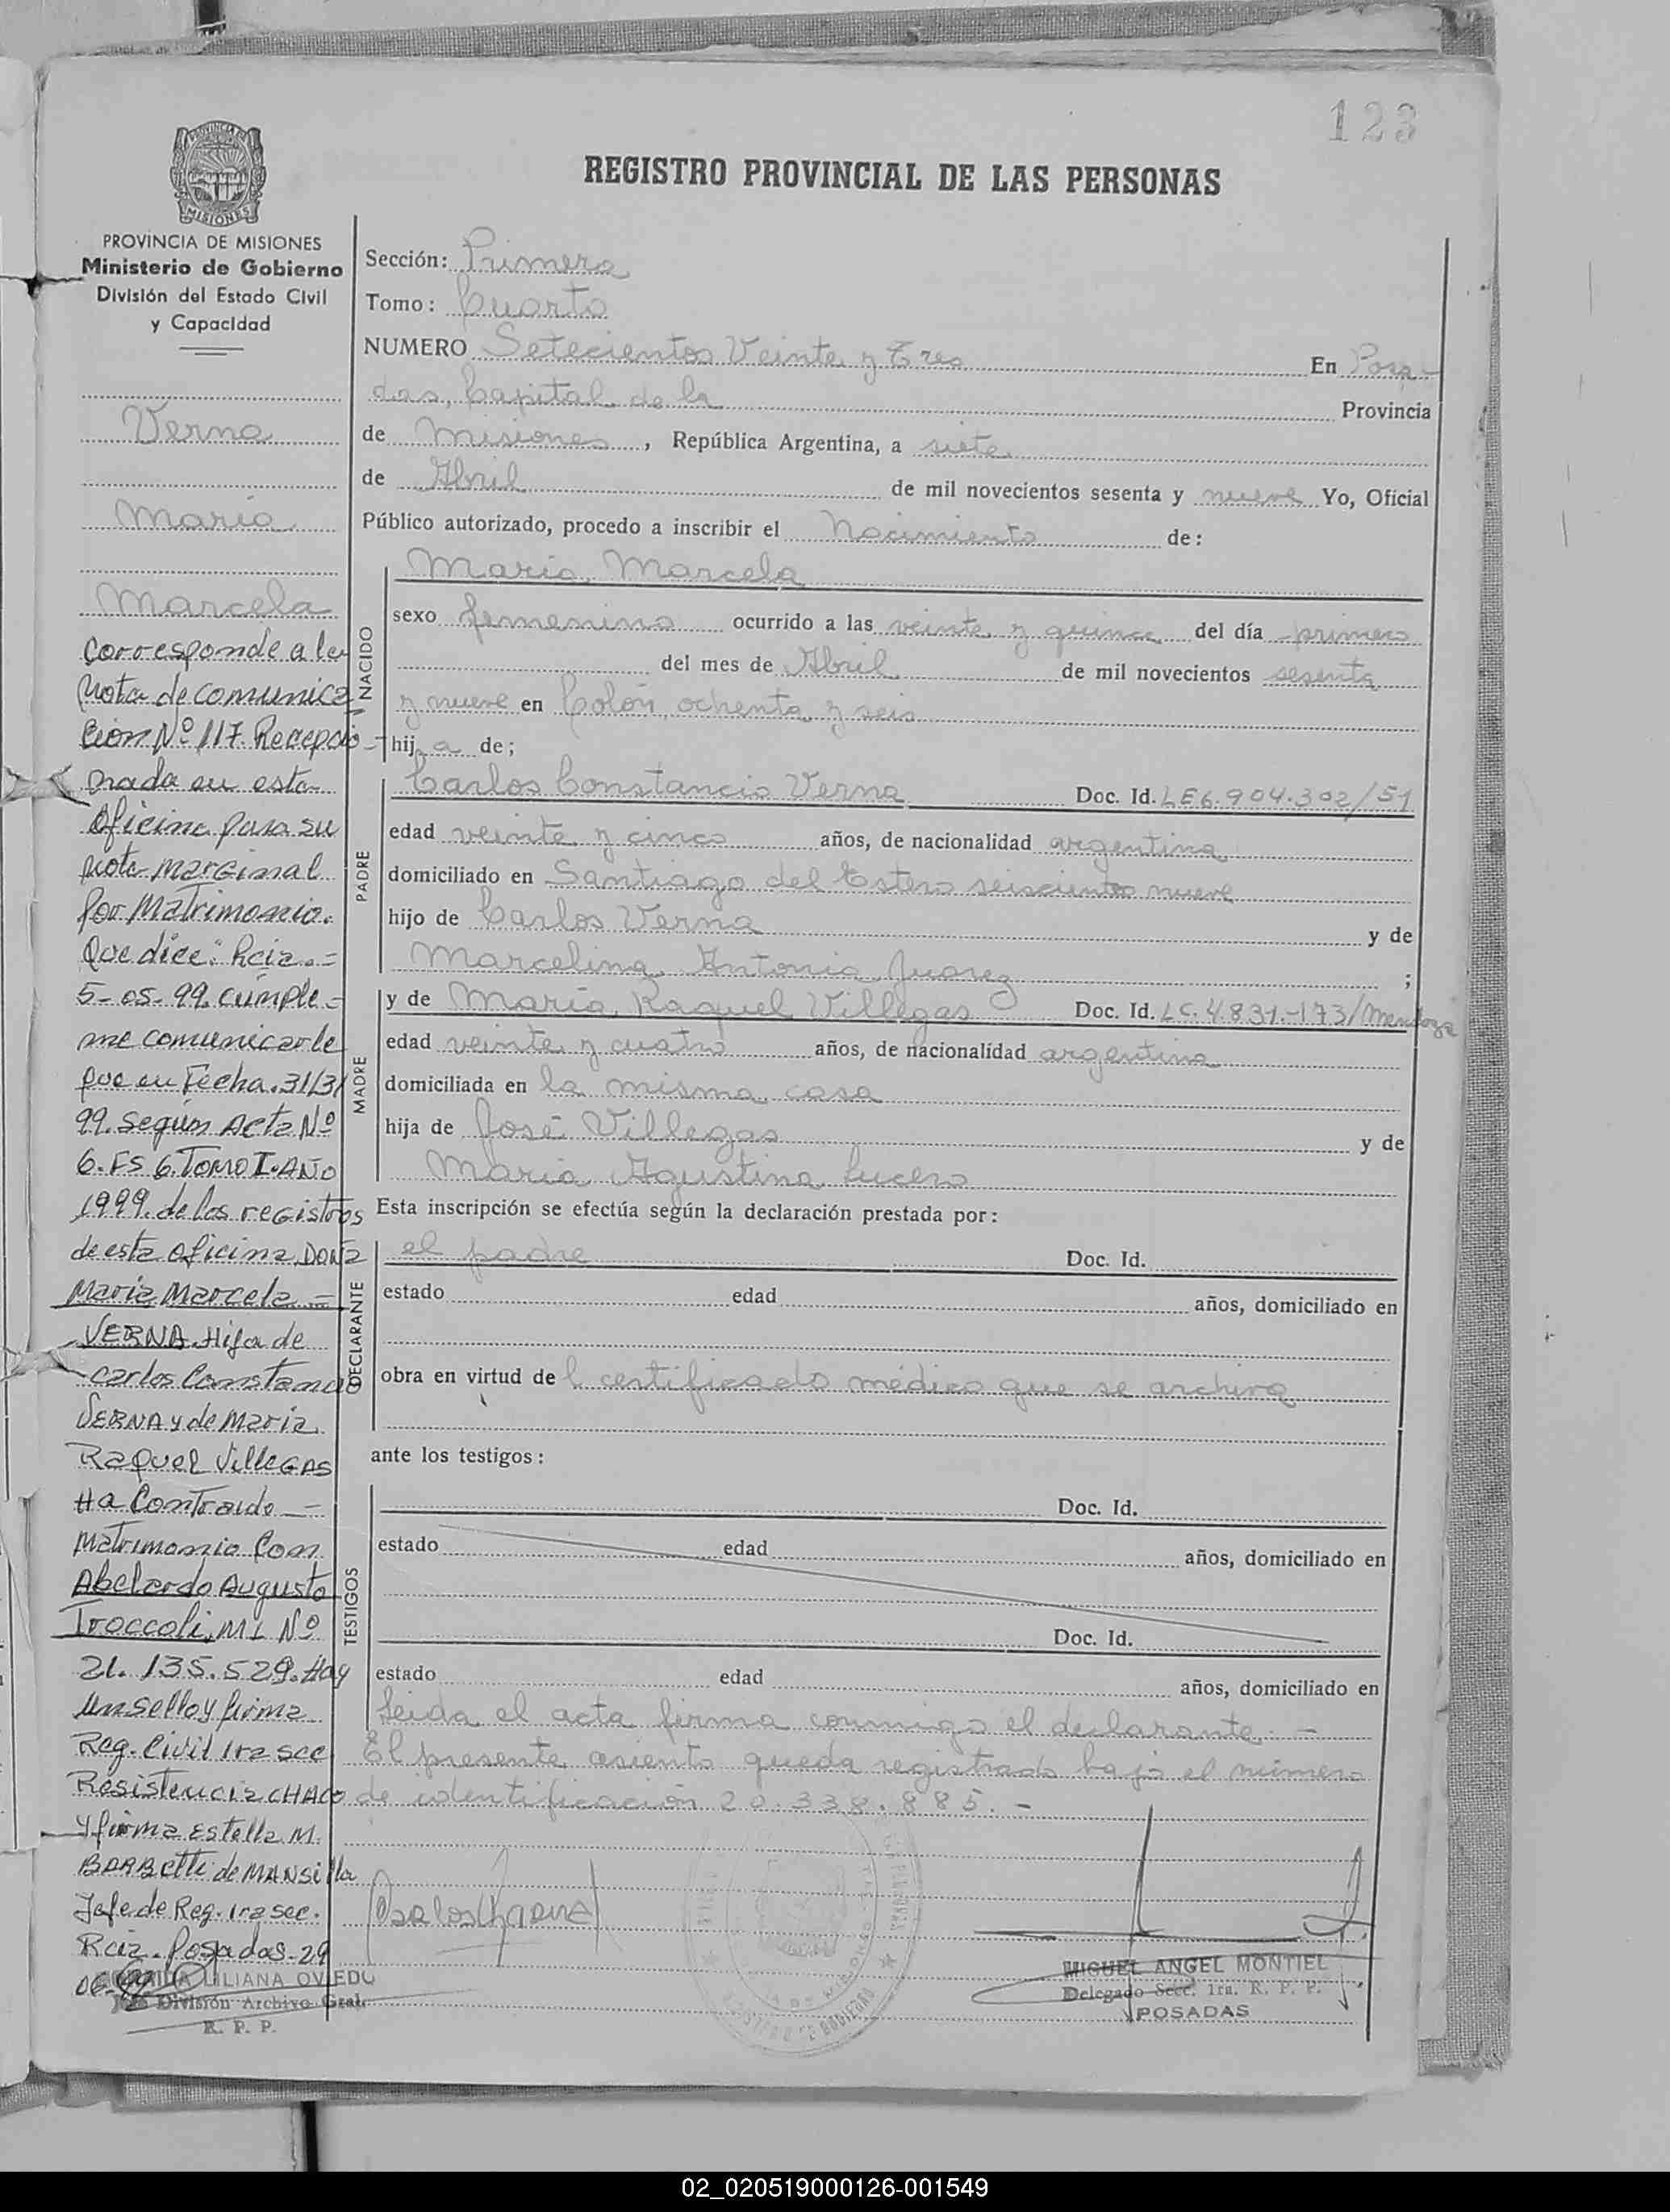 123
REGISTRO PROVINCIAL DE LAS PERSONAS
PROVINCIA DE MISIONES
MISIONES
PROVINCIA DE MISIONES
Ministerio de Gobierno
División del Estado Civil
y Capacidad
Verna
María
Marcela
Corresponde a la
Nota de comunica
ción Nº 117. Recepcio-
nada en esta
Oficina para su
nota marginal
por Matrimonio.
Que dice: Rcia.=
5-05-99. cumple-
me comunicarle
que en Fecha.31/3/
99. Según Acta Nº
6. FS 6. TOMO I. AÑO
1999. de los registros
de esta oficina, DOÑA
María Marcela =
VERNA. Hija de
Carlos Constancio
VERNA y de María
Raquel Villegas
Ha Contraido =
Matrimonio Con
Abelardo Augusto
Troccoli, MI Nº
21.135.529. Hay
un sello y firma
Reg. Civil 1ra secc
Resistencia CHACO
y firma Estella M.
BARBetti de MANSilla
Jefe de Reg. 1ra sec.
Rcia. Posadas-29
06-99
LILIANA OVIEDO
División Archivo Gral.
R. P. P.
Sección: Primera
Tomo: Cuarto
NUMERO Setecientos Veinte y Tres En Posa-
das, Capital de la Provincia
de Misiones, República Argentina, a siete
de Abril de mil novecientos sesenta y nueve Yo, Oficial
Público autorizado, procedo a inscribir el Nacimiento de:
NACIDO
María Marcela
sexo femenino ocurrido a las veinte y quince del día primero
del mes de Abril de mil novecientos sesenta
y nueve en Colón, ochenta y seis
hija de;
PADRE
Carlos Constancio Verna Doc. Id. LE 6.904.302/51
edad veinte y cinco años, de nacionalidad argentina
domiciliado en Santiago del Estero seiscientos nueve
hijo de Carlos Verna y de
Marcelina Antonia Juarez ;
MADRE
y de María Raquel Villegas Doc. Id. LC. 4.831.-173/Mendoza
edad veinte y cuatro años, de nacionalidad argentina
domiciliada en la misma casa
hija de José Villegas y de
María Agustina Lucero
Esta inscripción se efectúa según la declaración prestada por:
DECLARANTE
el padre Doc. Id.
estado edad años, domiciliado en
obra en virtud de l certificado médico que se archiva
ante los testigos:
TESTIGOS
Doc. Id.
estado edad años, domiciliado en
Doc. Id.
estado edad años, domiciliado en
Leida el acta firma conmigo el declarante.-
El presente asiento queda registrado bajo el número
de identificación 20.338.885.-
MIGUEL ANGEL MONTIEL
Delegado Secc. 1ra. R. P. P.
POSADAS
02_020519000126-001549